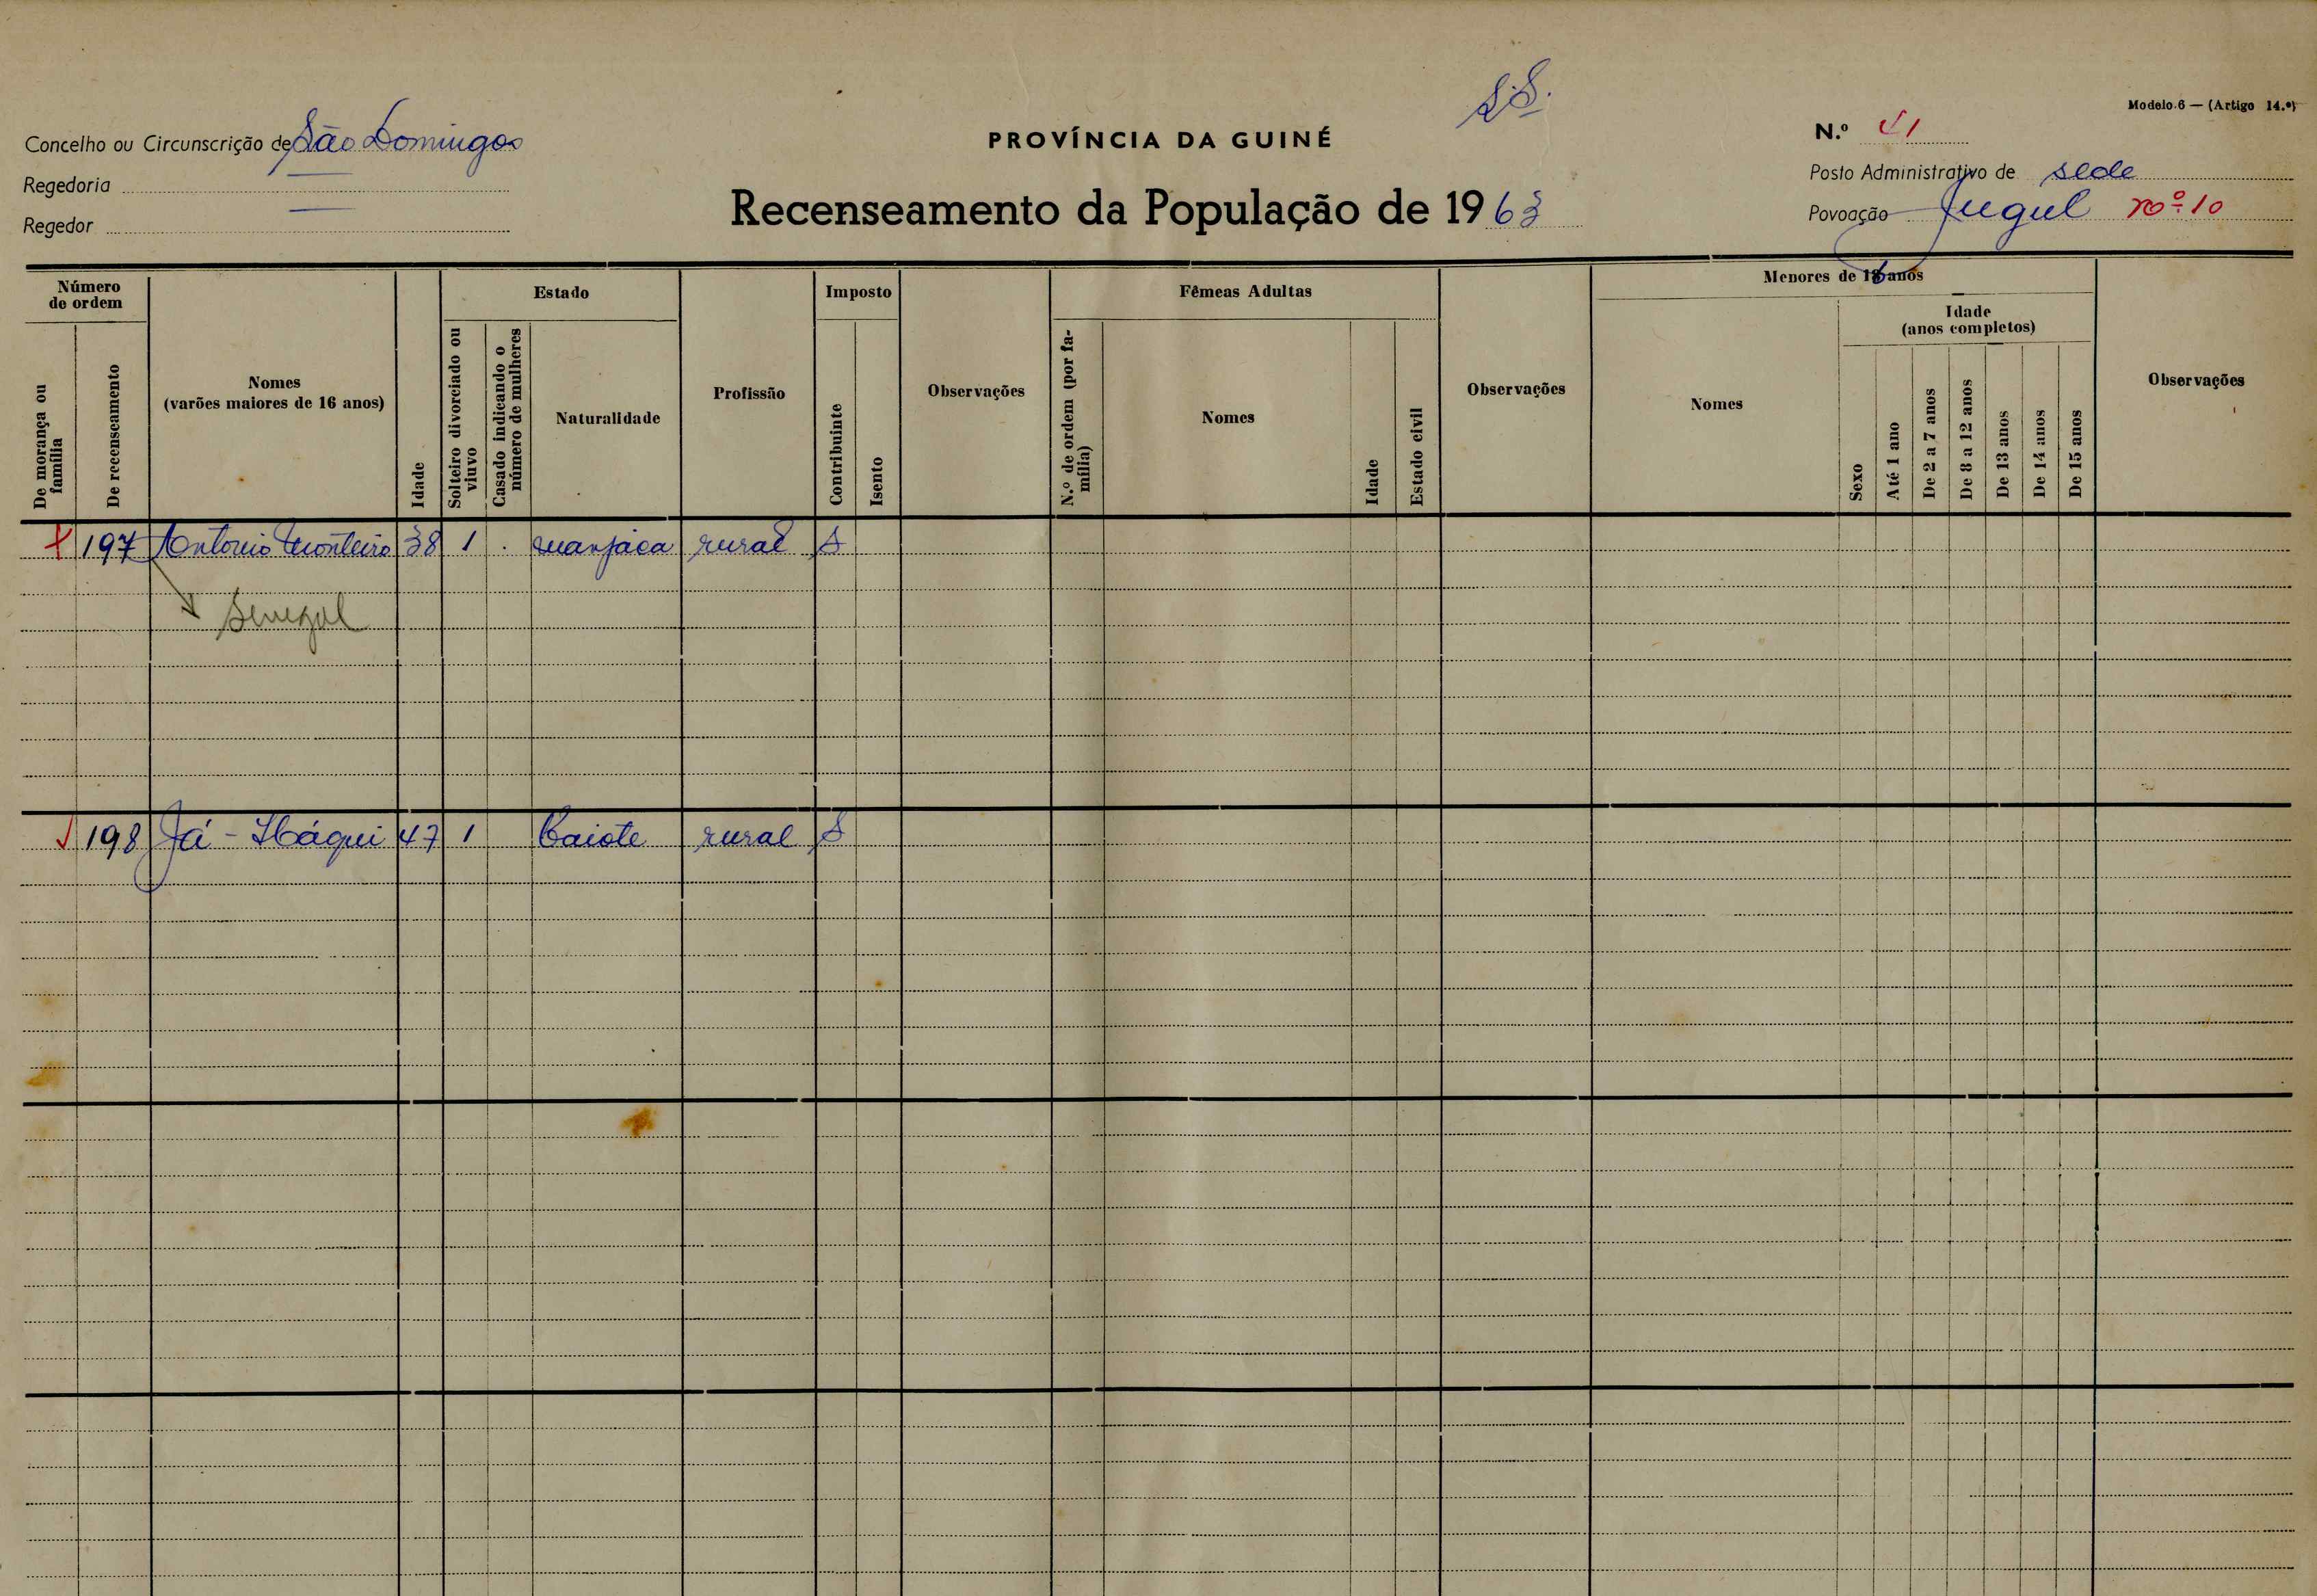 S.S.
Modelo 6 — (Artigo 14.º)
Concelho ou Circunscrição de São Domingos
PROVÍNCIA DA GUINÉ
N.º 41
Regedoria —
Posto Administrativo de sede
Regedor —
Recenseamento da População de 1963
Povoação Jugul nº 10
Número de ordem
De morança ou família
De recenseamento
Nomes
(varões maiores de 16 anos)
Idade
Estado
Solteiro divorciado ou viuvo
Casado indicando o número de mulheres
Naturalidade
Profissão
Imposto
Contribuinte
Isento
Observações
Fêmeas Adultas
N.º de ordem (por família)
Nomes
Idade
Estado civil
Observações
Menores de 16 anos
Nomes
Sexo
Idade
(anos completos)
Até 1 ano
De 2 a 7 anos
De 8 a 12 anos
De 13 anos
De 14 anos
De 15 anos
Observações
197 Antonio Monteiro 38 1 manjaca rural S
Senegal
198 Já - Háqui 47 1 Caiote rural S